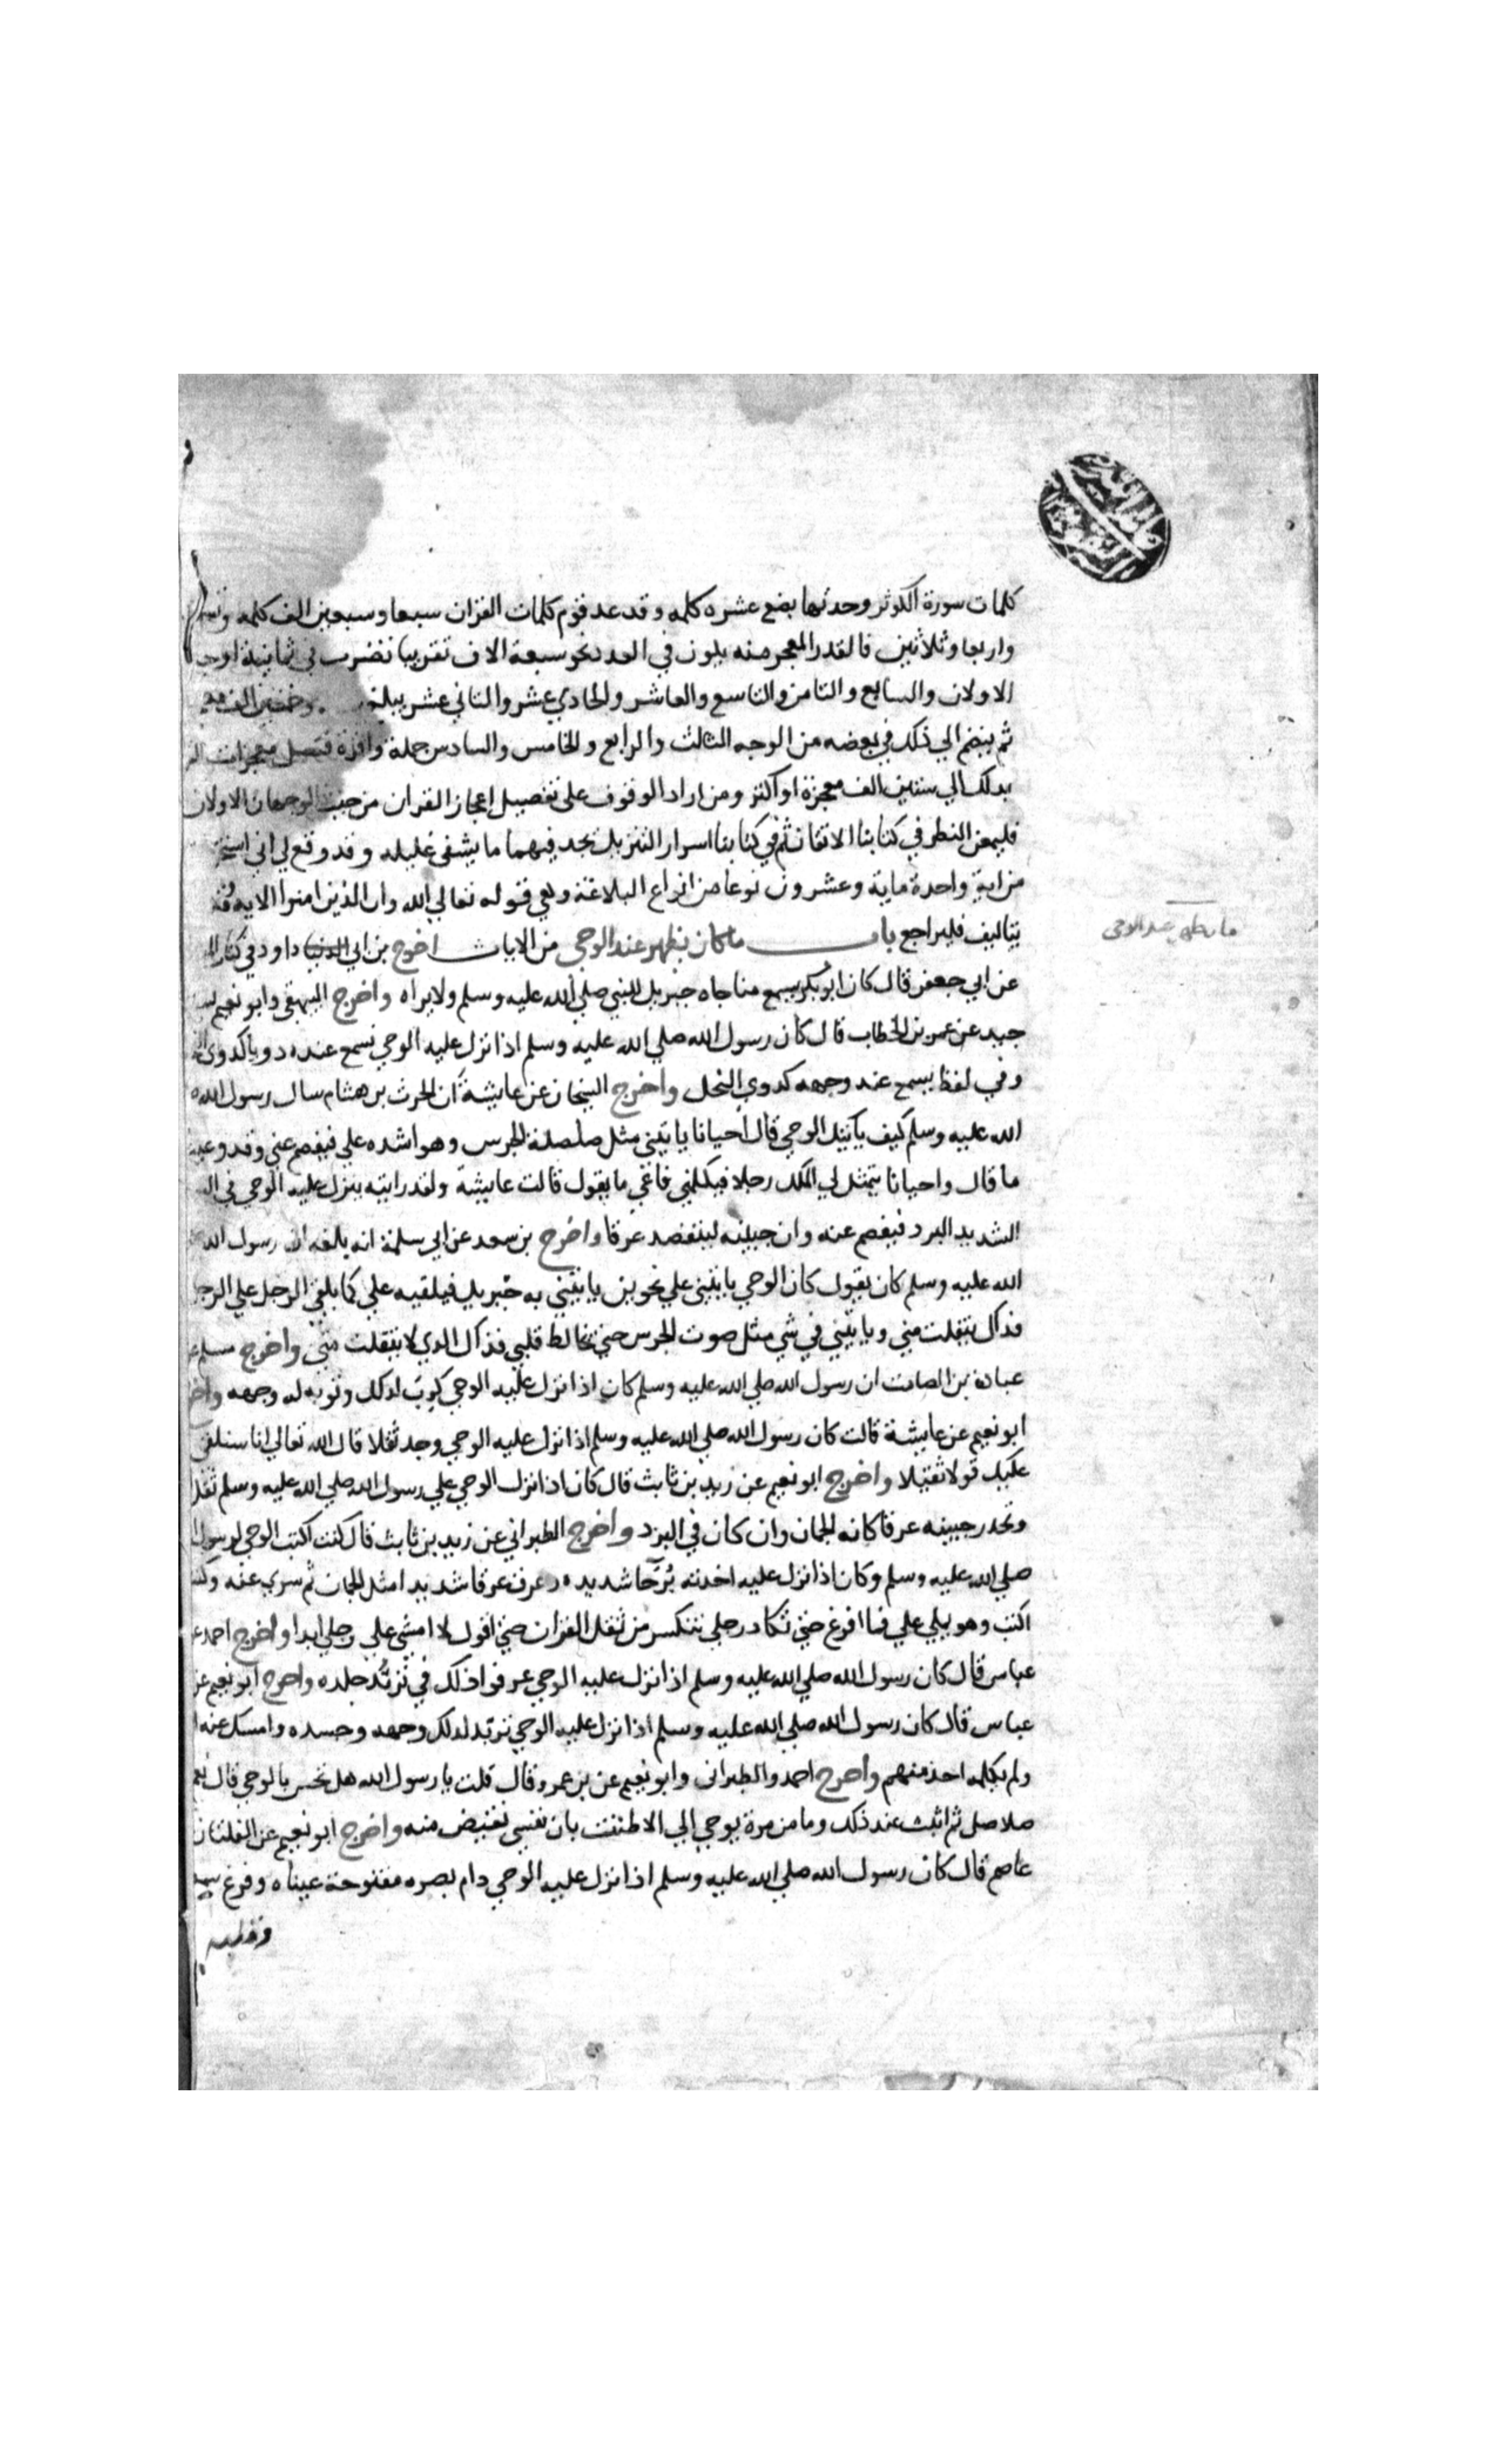 كلمات سورة الكوثر وحدتها بضع عشره كلمه وقد عد قوم كلمات القران سبعا وسبعين الف كلمه
واربعا وثلاثين فالقدر المعجز منه يكون في العد نحو سبعة الاف تقريبا تضرب في ثمانية اوجه
الاولان والسابع والثامن والتاسع والعاشر والحادي عشر والثاني عشر يبلغ وخمسين الف
ثم ينضم الي ذلك في بعضه من الوجه الثالث والرابع والخامس والسادس جملة وافرة فتصل معجزات
بدلك الي ستين الف معجزة او اكثر ومن اراد الوقوف على تفصيل اعجاز القران من حيث الوجهان الاولان
فليمعن النظر في كتابنا الاتقان ثم في كتابنا اسرار التنزيل يجد فيهما ما يشفى غليله وقد وقع لي اني
من اية واحدة ماية وعشرون نوعا من انواع البلاغة وهي قوله تعالي الله ولي الذين امنوا الايه
بتاليف فليراجع باب ما كان يظهر عند الوحي من الايات اخرج بن ابي داود في
ما يظهر عند الوحى
عن ابي جعفر قال كان ابو بكر يسمع مناجاه جبريل للنبي صلي الله عليه وسلم ولا يراه واخرج البيهقى وابو نعيم
حيد عن عمر بن الخطاب قال كان رسول الله صلي الله عليه وسلم اذا نزل عليه الوحي نسمع عنده دويا كدوي
وفي لفظ يسمع عند وجهه كدوي النحل واخرج الشيخان عن عايشة ان الحرث بن هشام سال رسول الله
الله عليه وسلم كيف ياتيك الوحي قال احيانا ياتيني مثل صلصلة الجرس وهو اشده علي فيفصم عني وقد وعيت
ما قال واحيانا يتمثل لي الملك رجلا فيكلمني فاعي ما يقول قالت عايشة ولقد رايته ينزل عليه الوحي في
الشديد البرد فيفصم عنه وان جبينه ليتفصد عرقا واخرج بن سعد عن ابي سلمة انه بلغه ان رسول الله
الله عليه وسلم كان يقول كان الوحي ياتيني علي نحوين ياتيني به جبريل فيلقيه علي كما يلقي الرجل علي الرجل
فذاك يتفلت مني وياتيني في شي مثل صوت الجرس حتي يخالط قلبي فذاك الدي لا يتفلت مني واخرج مسلم
عبادة بن الصامت ان رسول الله صلي الله عليه وسلم كان اذا نزل عليه الوحي كرب لدلك وتربد له وجهه
ابو نعيم عن عايشة قالت كان رسول الله صلي الله عليه وسلم اذا نزل عليه الوحي وجد ثقلا قال الله تعالي انا سنلقي
عليك قولا ثقيلا واخرج ابو نعيم عن زيد بن ثابت قال كان اذا نزل الوحي علي رسول الله صلي الله عليه وسلم ثقل
وتحدر جبينه عرقا كانه الجمان وان كان في البرد واخرج الطبراني عن زيد بن ثابت قال كنت اكتب الوحي لرسول
صلي الله عليه وسلم وكان اذا نزل عليه اخدته برحا شديده وعرق عرقا شديدا مثل الجمان ثم سري عنه وكنت
اكتب وهو يملي علي فما افرغ حتي تكاد رجلي تنكسر من ثقل القران حتي اقول لا امشي علي رجلي ابدا واخرج احمد
عباس قال كان رسول الله صلي الله عليه وسلم اذا نزل عليه الوحي عرفوا ذلك في تربد جلده واخرج ابو نعيم عن
عباس قال كان رسول الله صلي الله عليه وسلم اذا نزل عليه الوحي تربد لدلك وجهه وجسده وامسك عنه
ولم يكلمه احد منهم واخرج احمد والطبراني وابو نعيم عن بن عمرو قال قلت يا رسول الله هل تحس بالوحي قال نعم
صلاصل ثم اثبت عند ذلك وما من مرة يوحي الي الا ظننت بان نفسي تقبض منه واخرج ابو نعيم عن الفلتان
عاصم قال كان رسول الله صلي الله عليه وسلم اذا نزل عليه الوحي دام بصره مفتوحة عيناه وفرغ سمعه
وقلبه